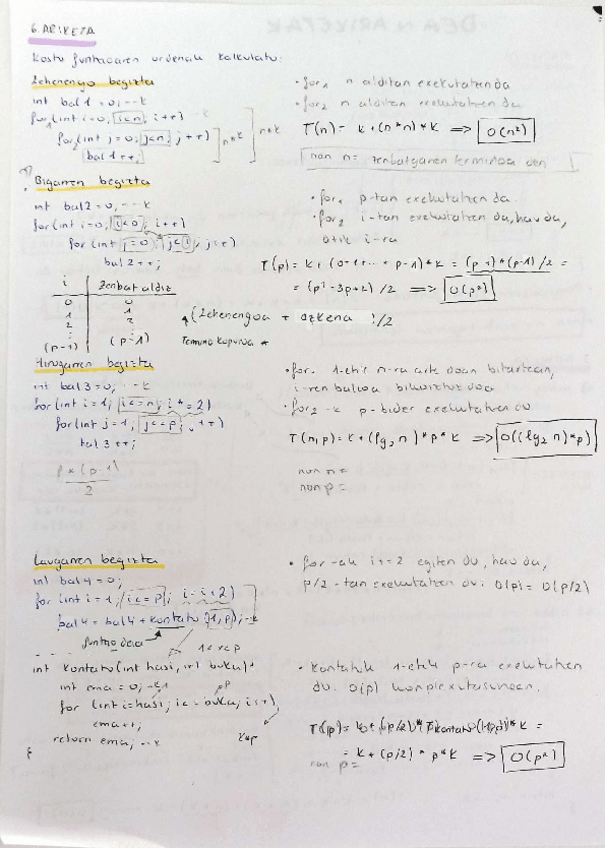 6. ARIKETA
Kostu funtzioaren ordenak kalkulatu:
Lehenengo begizta
int bal1 = 0; --- k
for1 (int i=0; i<n; i++) --- k
for2 (int j=0; j<n; j++) ] n*k ] n*k
bal1++;
· for1 n alditan exekutatzen da
· for2 n alditan exekutatzen da
T(n) = k + (n*n) * k => O(n²)
non n = zenbatgarren terminoa den
Bigarren begizta
int bal2 = 0; --- k
for (int i=0; i<p; i++)
for (int j=0; j<i; j++)
bal2++;
i | zenbat aldiz
0 | 0
1 | 1
2 | 2
(p-1) | (p-1)
· for1 p-tan exekutatzen da.
· for2 i-tan exekutatzen da, hau da,
0tik i-ra
T(p) = k + (0+1+... + p-1) * k = (p-1)*(p-1)/2 =
= (p²-3p+k)/2 => O(p²)
(Lehenengoa + azkena)/2
Termino kopurua *
Hirugarren begizta
int bal3 = 0; --- k
for (int i=1; i<=n; i*=2)
for (int j=1; j<=p; j++)
bal3++;
p*(p-1)
2
· for1 1-etik n-ra arte doan bitartean,
i-ren balioa bikoiztuz doa
· for2-k p-bider exekutatzen du
T(n,p) = k + (lg₂ n) * p * k => O((lg₂ n)*p)
non n =
non p =
Laugarren begizta
int bal4 = 0;
for (int i=1; i<=p; i=i+2)
bal4 = bal4 + kontatu(1,p); -k
funtzio deia
1etik p
int kontatu(int hasi, int buku){
int ema = 0; -k
for (int i=hasi; i<=buku; i++)
ema++;
return ema; --k
}
k*p
· for-ak i+=2 egiten du, hau da,
p/2-tan exekutatzen du: O(p) = O(p/2)
· Kontatuk 1-etik p-ra exekutatzen
du. O(p) konplexutasunean.
T(p) = k + (p/2) * kontatu(1,p) * k =
= k + (p/2) * p * k => O(p²)
non p =